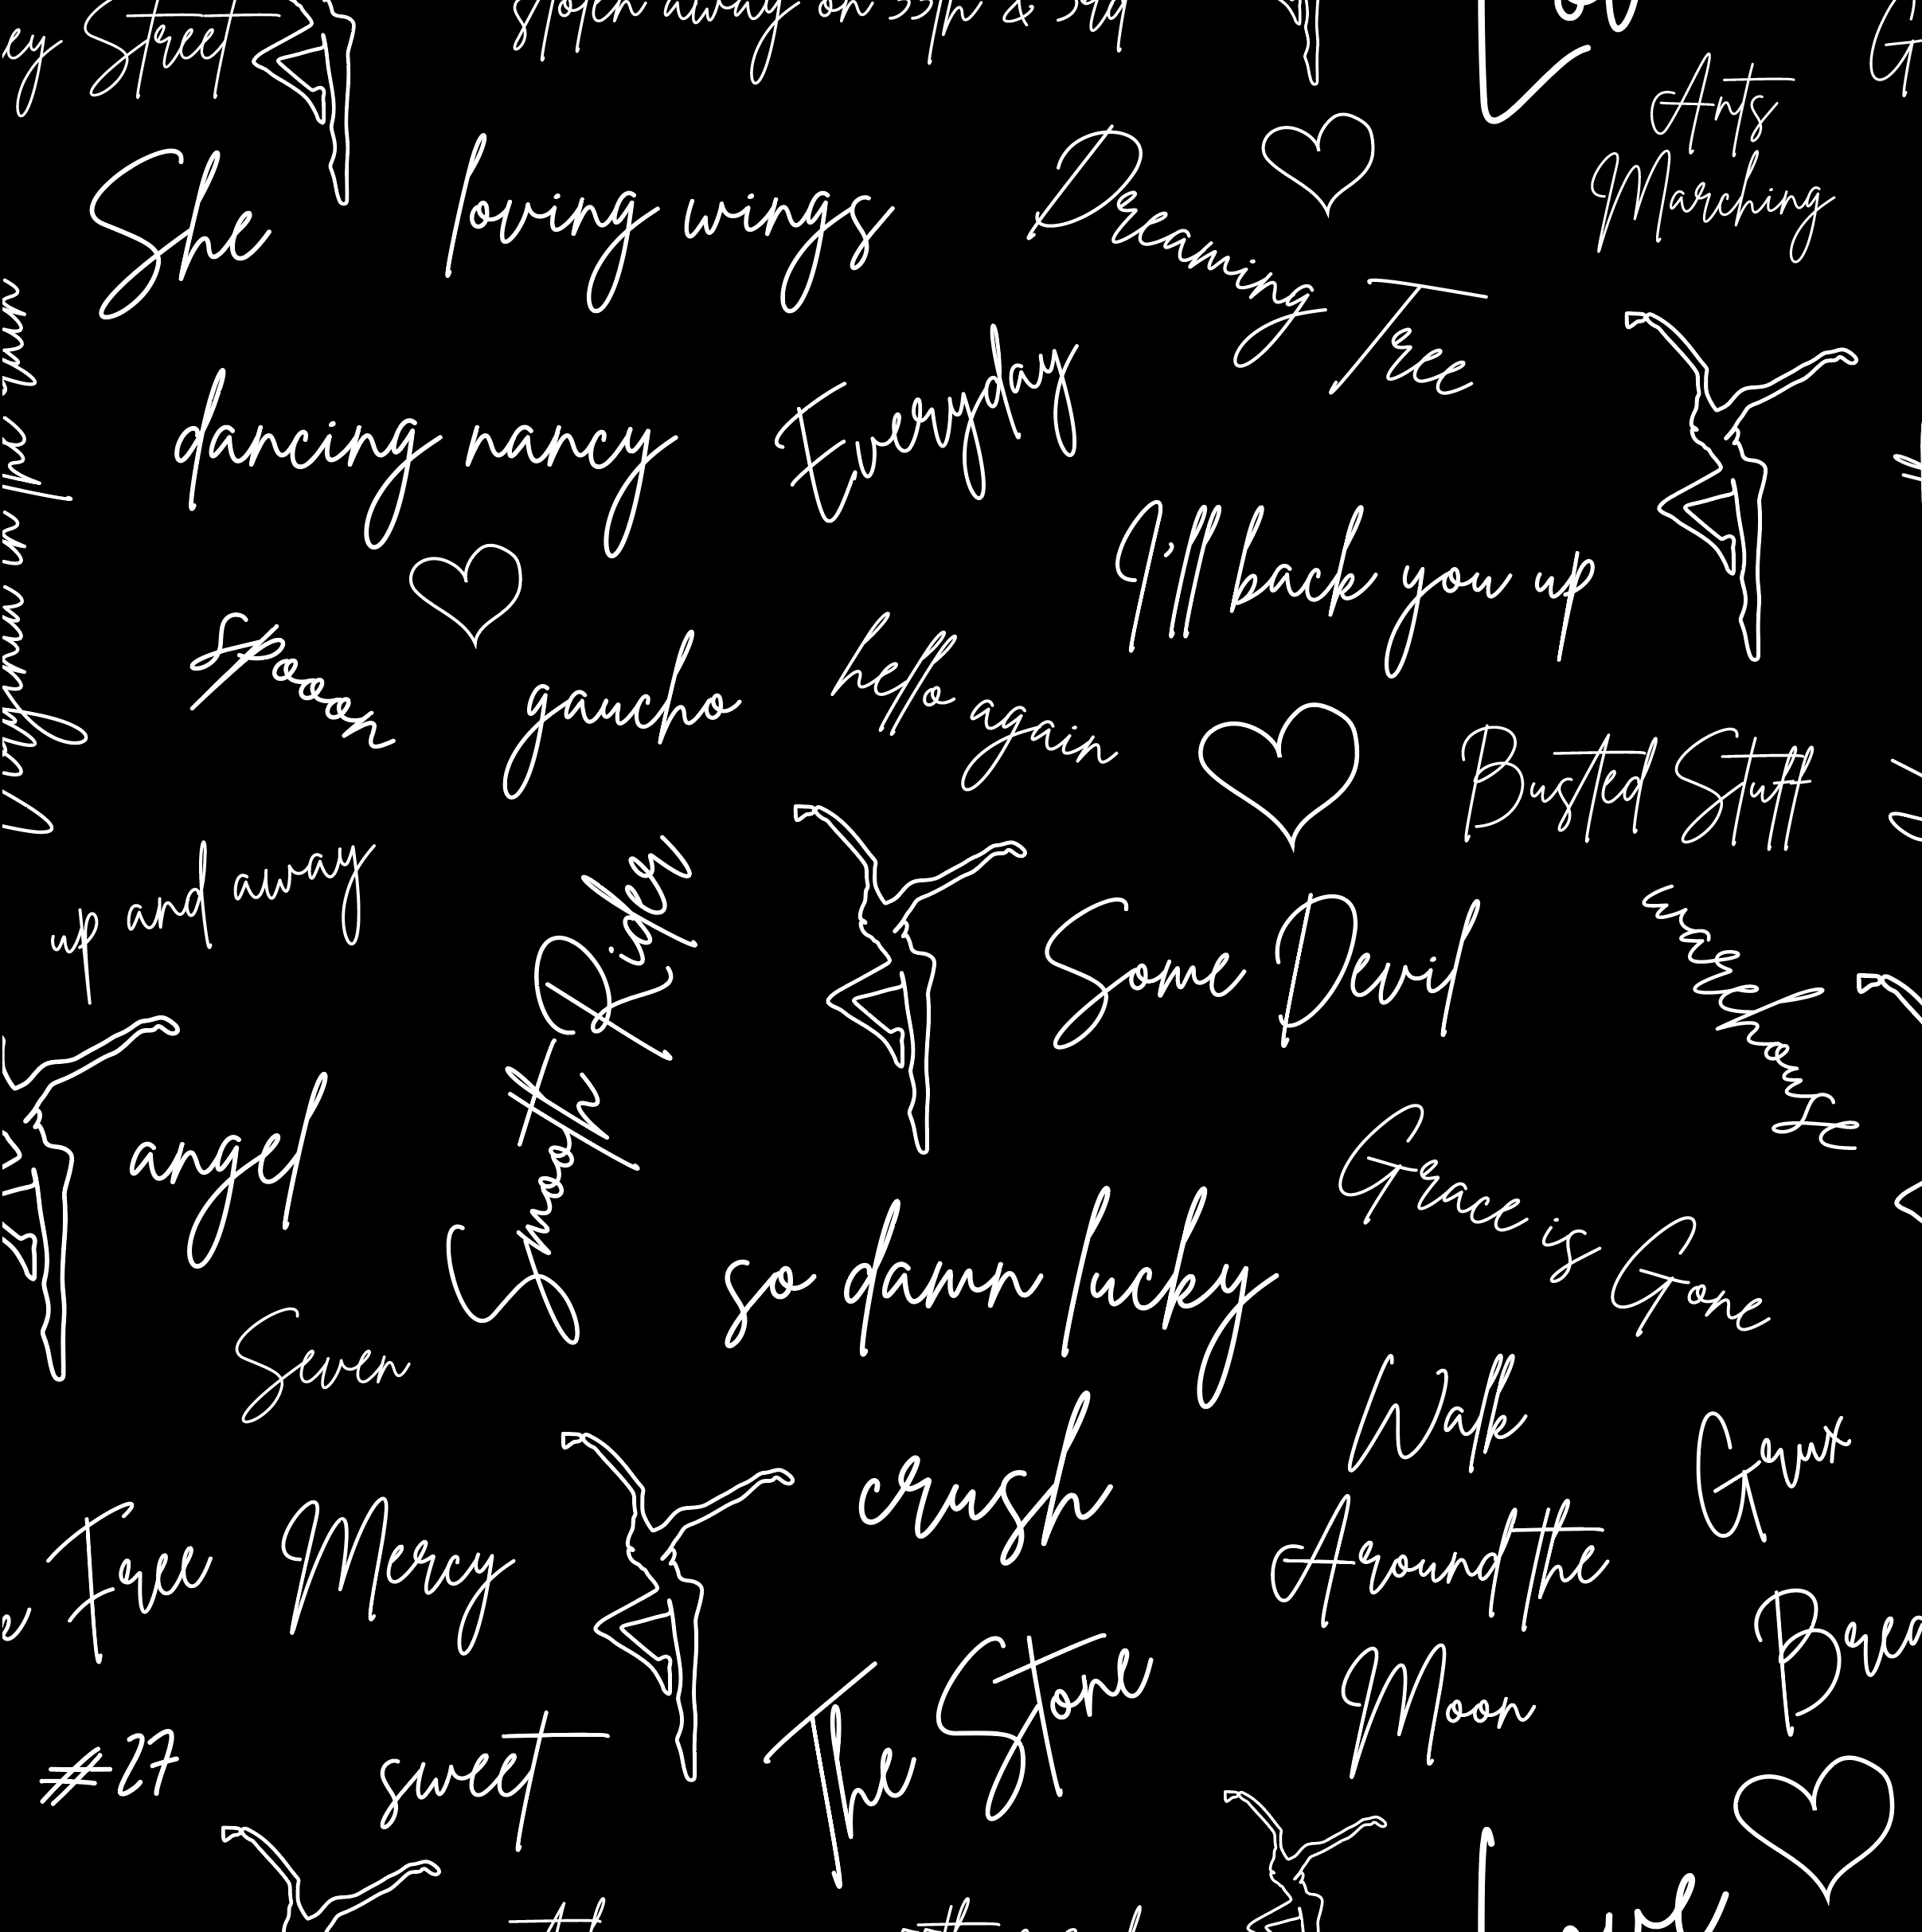 Street
stolen away on 55th & 3rd
Arts
Marching
She
loving wings
Dreaming
Tree
dancing nancy
Everyday
I'll back you up
Virginia in the rain
Spoon
gaucho
hello again
Busted Stuff
up and away
Smooth Rider
Some Devil
angel
Grace is
Gone
so damn lucky
Seven
Walk
Around the
Moon
crush
Grux
Free Mercy
The Stone
#27
sweet